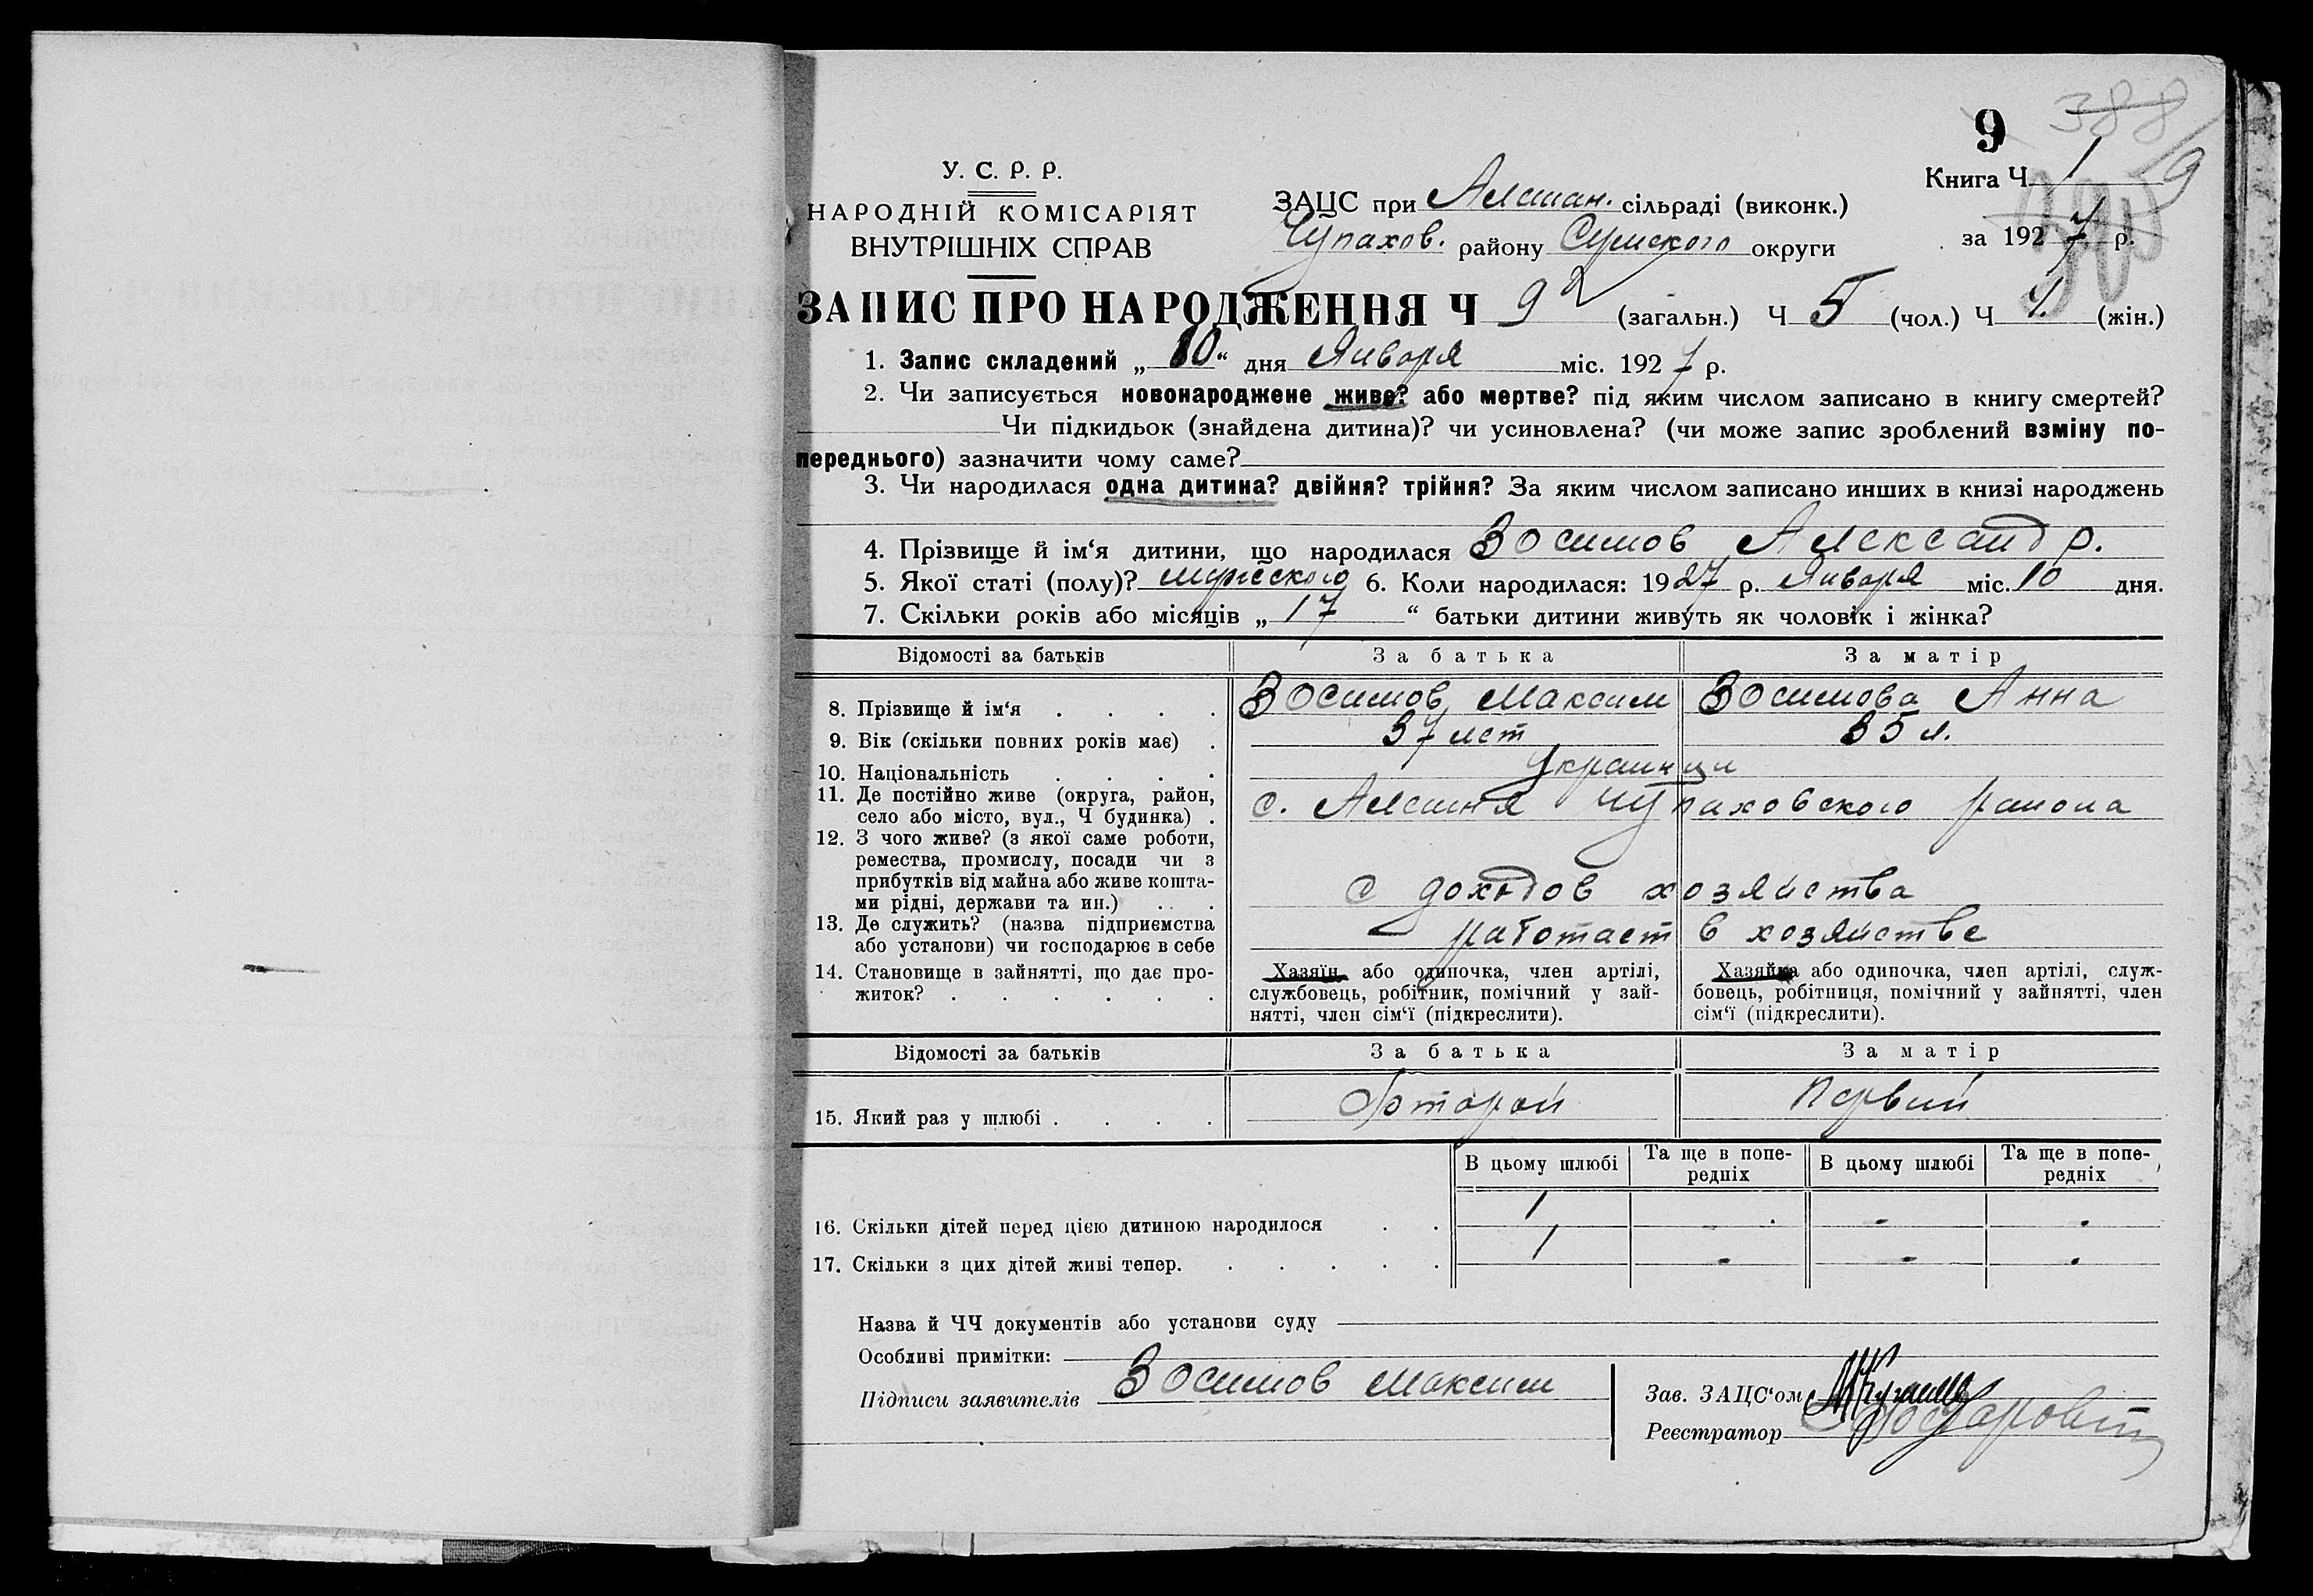 9 388
Книга Ч. 1 9
У. С. Р. Р.
НАРОДНІЙ КОМІСАРІЯТ
ВНУТРІШНІХ СПРАВ
ЗАЦС при Алешан. сільраді (виконк.)
Чупахов. району Сумского округи
за 1927 р.
ЗАПИС ПРО НАРОДЖЕННЯ Ч 9 (загальн.) Ч 5 (чол.) Ч (жін.)
1. Запис складений „10“ дня Января міс. 1927 р.
2. Чи записується новонароджене живе? або мертве? під яким числом записано в книгу смертей?
Чи підкидьок (знайдена дитина)? чи усиновлена? (чи може запис зроблений взміну по-
переднього) зазначити чому саме?
3. Чи народилася одна дитина? двійня? трійня? За яким числом записано инших в книзі народжень
4. Прізвище й ім‘я дитини, що народилася Зосимов Александр.
5. Якої статі (полу)? мужеского 6. Коли народилася: 1927 р. Января міс. 10 дня.
7. Скільки років або місяців „17“ батьки дитини живуть як чоловік і жінка?
Відомості за батьків За батька За матір
8. Прізвище й ім‘я . . . . Зосимов Максим Зосимова Анна
9. Вік (скільки повних років має) . 37 лет 35 л.
10. Національність . . . . Украинци
11. Де постійно живе (округа, район,
село або місто, вул., Ч будинка) . с. Алешня Чупаховского района
12. З чого живе? (з якої саме роботи,
ремества, промислу, посади чи з
прибутків від майна або живе кошта-
ми рідні, держави та ин.) . . . С доходов хозяйства
13. Де служить? (назва підприємства
або установи) чи господарює в себе работает в хозяйстве
14. Становище в зайнятті, що дає про-
житок? . . . . . .
Хазяїн або одиночка, член артілі,
службовець, робітник, помічний у зай-
нятті, член сім‘ї (підкреслити).
Хазяйка або одиночка, член артілі, служ-
бовець, робітниця, помічний у зайнятті, член
сім‘ї (підкреслити).
Відомості за батьків За батька За матір
15. Який раз у шлюбі . . . . Второй Первий
В цьому шлюбі Та ще в попе-
редніх В цьому шлюбі Та ще в попе-
редніх
16. Скільки дітей перед цією дитиною народилося . . 1 - - -
17. Скільки з цих дітей живі тепер. . . . . . 1 - - -
Назва й ЧЧ документів або установи суду
Особливі примітки:
Підписи заявителів Зосимов Максим
Зав. ЗАЦС‘ом
Реєстратор